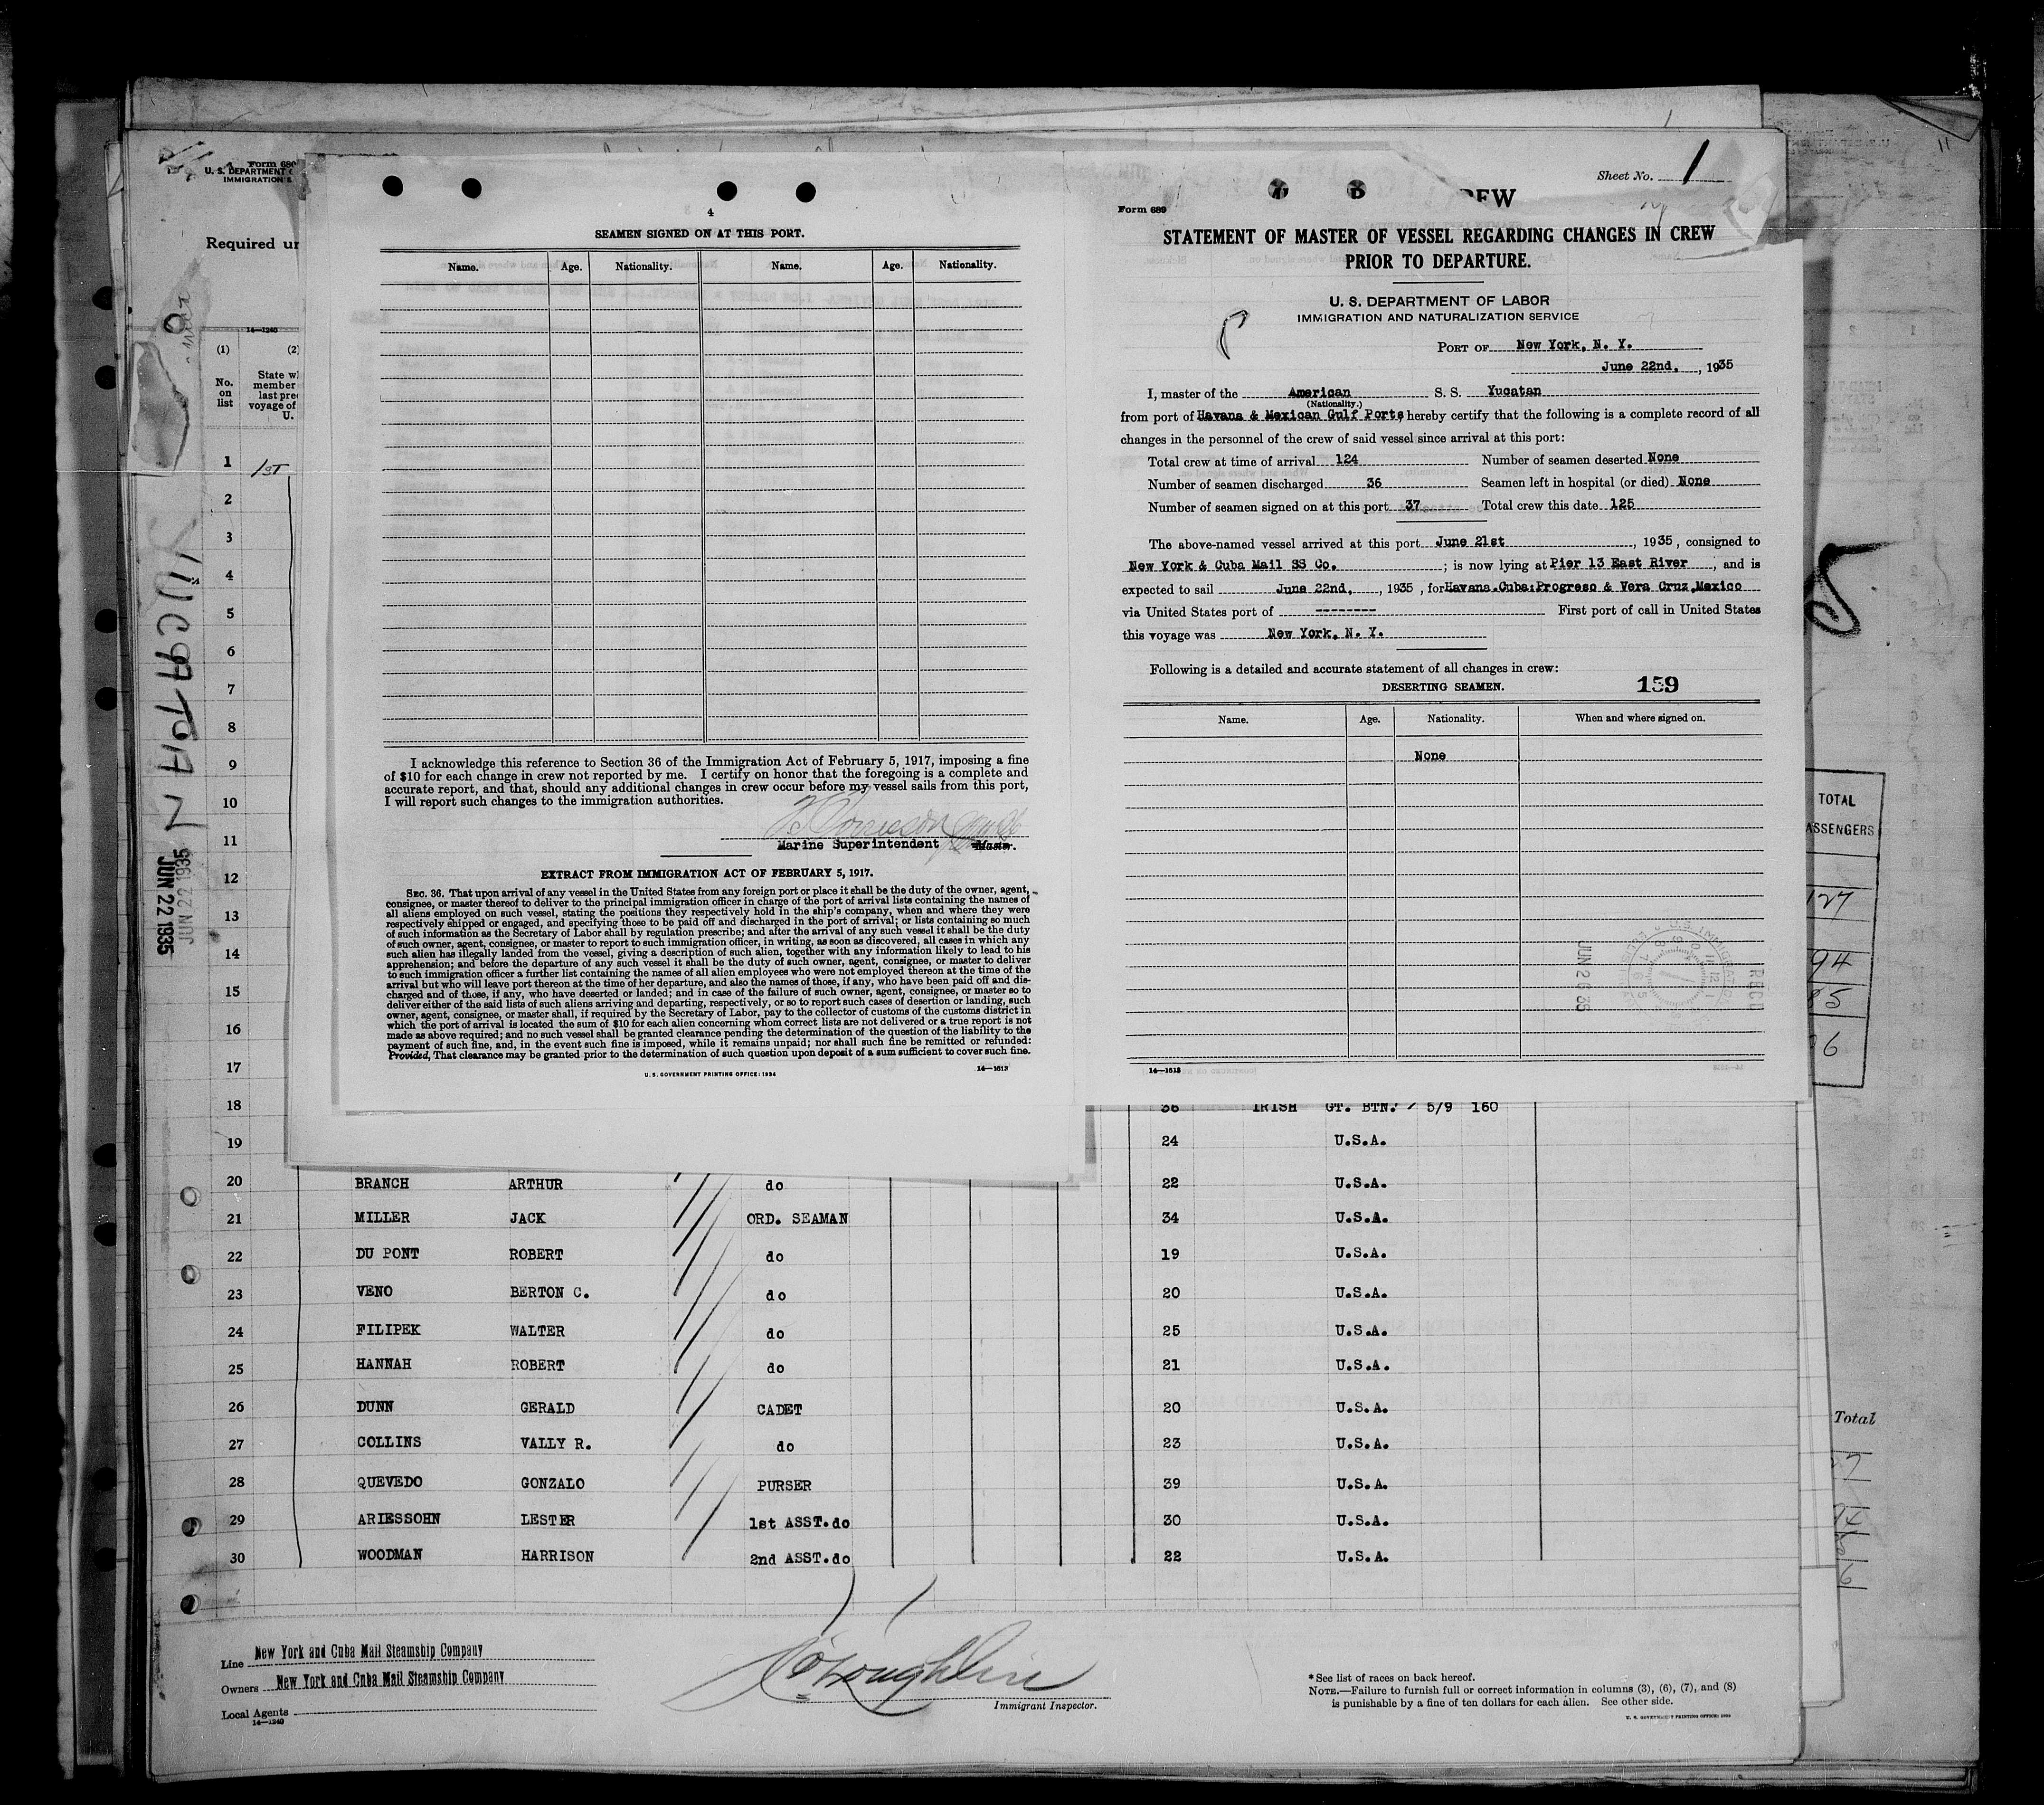 Form 689
U. S. DEPARTMENT
IMMIGRATION
Required
14—1240
(1)
(2)
No.
on
list
State
member
last
voyage of
U.
1 1st
2
3
4
5
6
7
8
9
10
11
12
13
14
15
16
17
18
19
YUCATAN
JUN 22 1935
JUN 22 1935
4
SEAMEN SIGNED ON AT THIS PORT.
Name. Age. Nationality. Name. Age. Nationality.
I acknowledge this reference to Section 36 of the Immigration Act of February 5, 1917, imposing a fine
of $10 for each change in crew not reported by me. I certify on honor that the foregoing is a complete and
accurate report, and that, should any additional changes in crew occur before my vessel sails from this port,
I will report such changes to the immigration authorities.
Marine Superintendent Master.
EXTRACT FROM IMMIGRATION ACT OF FEBRUARY 5, 1917.
SEC. 36. That upon arrival of any vessel in the United States from any foreign port or place it shall be the duty of the owner, agent,
consignee, or master thereof to deliver to the principal immigration officer in charge of the port of arrival lists containing the names of
all aliens employed on such vessel, stating the positions they respectively hold in the ship's company, when and where they were
respectively shipped or engaged, and specifying those to be paid off and discharged in the port of arrival; or lists containing so much
of such information as the Secretary of Labor shall by regulation prescribe; and after the arrival of any such vessel it shall be the duty
of such owner, agent, consignee, or master to report to such immigration officer, in writing, as soon as discovered, all cases in which any
such alien has illegally landed from the vessel, giving a description of such alien, together with any information likely to lead to his
apprehension; and before the departure of any such vessel it shall be the duty of such owner, agent, consignee, or master to deliver
to such immigration officer a further list containing the names of all alien employees who were not employed thereon at the time of the
arrival but who will leave port thereon at the time of her departure, and also the names of those, if any, who have been paid off and dis-
charged and of those, if any, who have deserted or landed; and in case of the failure of such owner, agent, consignee, or master so to
deliver either of the said lists of such aliens arriving and departing, respectively, or so to report such cases of desertion or landing, such
owner, agent, consignee, or master shall, if required by the Secretary of Labor, pay to the collector of customs of the customs district in
which the port of arrival is located the sum of $10 for each alien concerning whom correct lists are not delivered or a true report is not
made as above required; and no such vessel shall be granted clearance pending the determination of the question of the liability to the
payment of such fine, and, in the event such fine is imposed, while it remains unpaid; nor shall such fine be remitted or refunded:
Provided, That clearance may be granted prior to the determination of such question upon deposit of a sum sufficient to cover such fine.
U. S. GOVERNMENT PRINTING OFFICE: 1934 14—1613
Sheet No. 1
Form 689
STATEMENT OF MASTER OF VESSEL REGARDING CHANGES IN CREW
PRIOR TO DEPARTURE.
U. S. DEPARTMENT OF LABOR
IMMIGRATION AND NATURALIZATION SERVICE
PORT OF New York, N. Y.
June 22nd, , 1935
I, master of the American S. S. Yucatan
(Nationality.)
from port of Havana & Mexican Gulf Ports, hereby certify that the following is a complete record of all
changes in the personnel of the crew of said vessel since arrival at this port:
Total crew at time of arrival 124 Number of seamen deserted None
Number of seamen discharged 36 Seamen left in hospital (or died) None
Number of seamen signed on at this port 37 Total crew this date 125
The above-named vessel arrived at this port June 21st , 1935, consigned to
New York & Cuba Mail SS Co. ; is now lying at Pier 13 East River , and is
expected to sail June 22nd, , 1935, for Havana.Cuba:Progreso & Vera Cruz,Mexico
via United States port of -------- First port of call in United States
this voyage was New York, N. Y.
Following is a detailed and accurate statement of all changes in crew:
DESERTING SEAMEN. 159
Name. Age. Nationality. When and where signed on.
None
JUN 26 35
RECD
14—1613
TOTAL
PASSENGERS
127
94
85
06
36 IRISH GT. BTN. 5/9 160
24 U.S.A.
20 BRANCH ARTHUR do 22 U.S.A.
21 MILLER JACK ORD. SEAMAN 34 U.S.A.
22 DU PONT ROBERT do 19 U.S.A.
23 VENO BERTON C. do 20 U.S.A.
24 FILIPEK WALTER do 25 U.S.A.
25 HANNAH ROBERT do 21 U.S.A.
26 DUNN GERALD CADET 20 U.S.A.
27 COLLINS VALLY R. do 23 U.S.A.
28 QUEVEDO GONZALO PURSER 39 U.S.A.
29 ARIESSOHN LESTER 1st ASST.do 30 U.S.A.
30 WOODMAN HARRISON 2nd ASST.do 22 U.S.A.
Total
Line New York and Cuba Mail Steamship Company
Owners New York and Cuba Mail Steamship Company
Local Agents
14—1240
O'Loughlin
Immigrant Inspector.
* See list of races on back hereof.
NOTE.—Failure to furnish full or correct information in columns (3), (6), (7), and (8)
is punishable by a fine of ten dollars for each alien. See other side.
U. S. GOVERNMENT PRINTING OFFICE: 1933